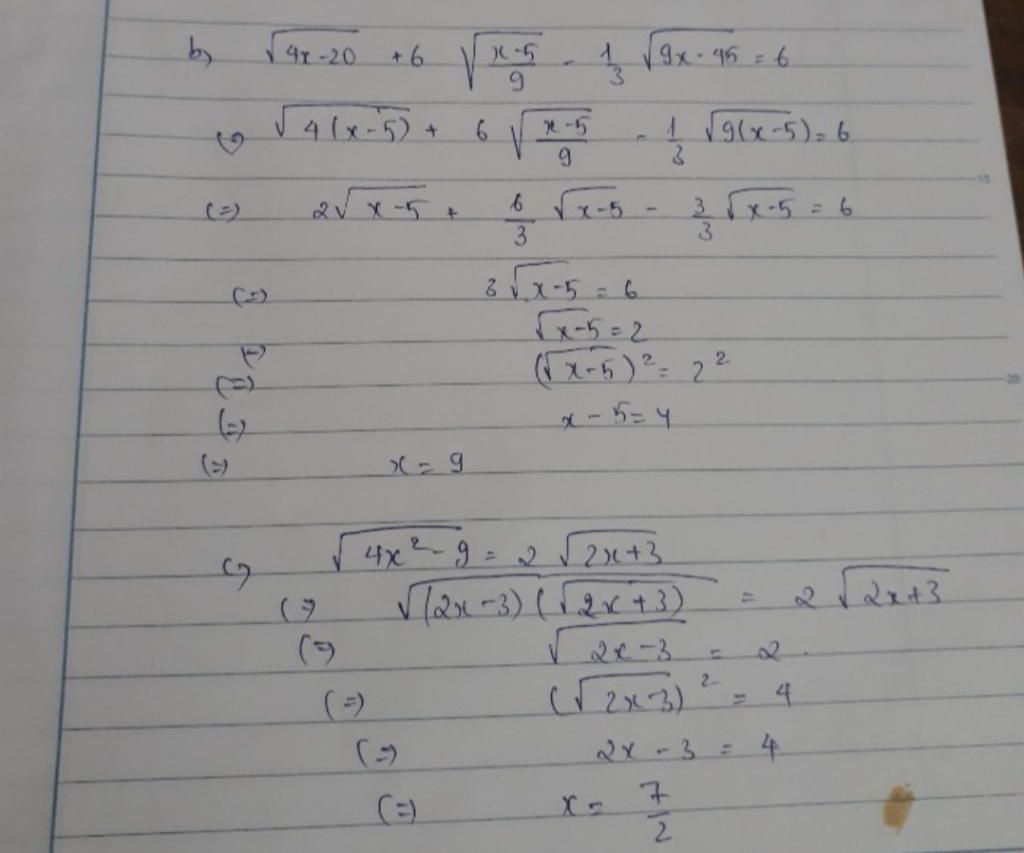 b) √(4x-20) + 6 √((x-5)/9) - 1/3 √(9x-45) = 6
(=) √(4(x-5)) + 6 √((x-5)/9) - 1/3 √(9(x-5)) = 6
(=) 2√(x-5) + 6/3 √(x-5) - 3/3 √(x-5) = 6
(=) 3√(x-5) = 6
√(x-5) = 2
(=)
(=) (√(x-5))² = 2²
(=) x - 5 = 4
(=) x = 9
c) √(4x²-9) = 2 √(2x+3)
(=) √((2x-3)(√(2x+3))) = 2 √(2x+3)
(=) √(2x-3) = 2
(=) (√(2x-3))² = 4
(=) 2x - 3 = 4
(=) x = 7/2
15
20